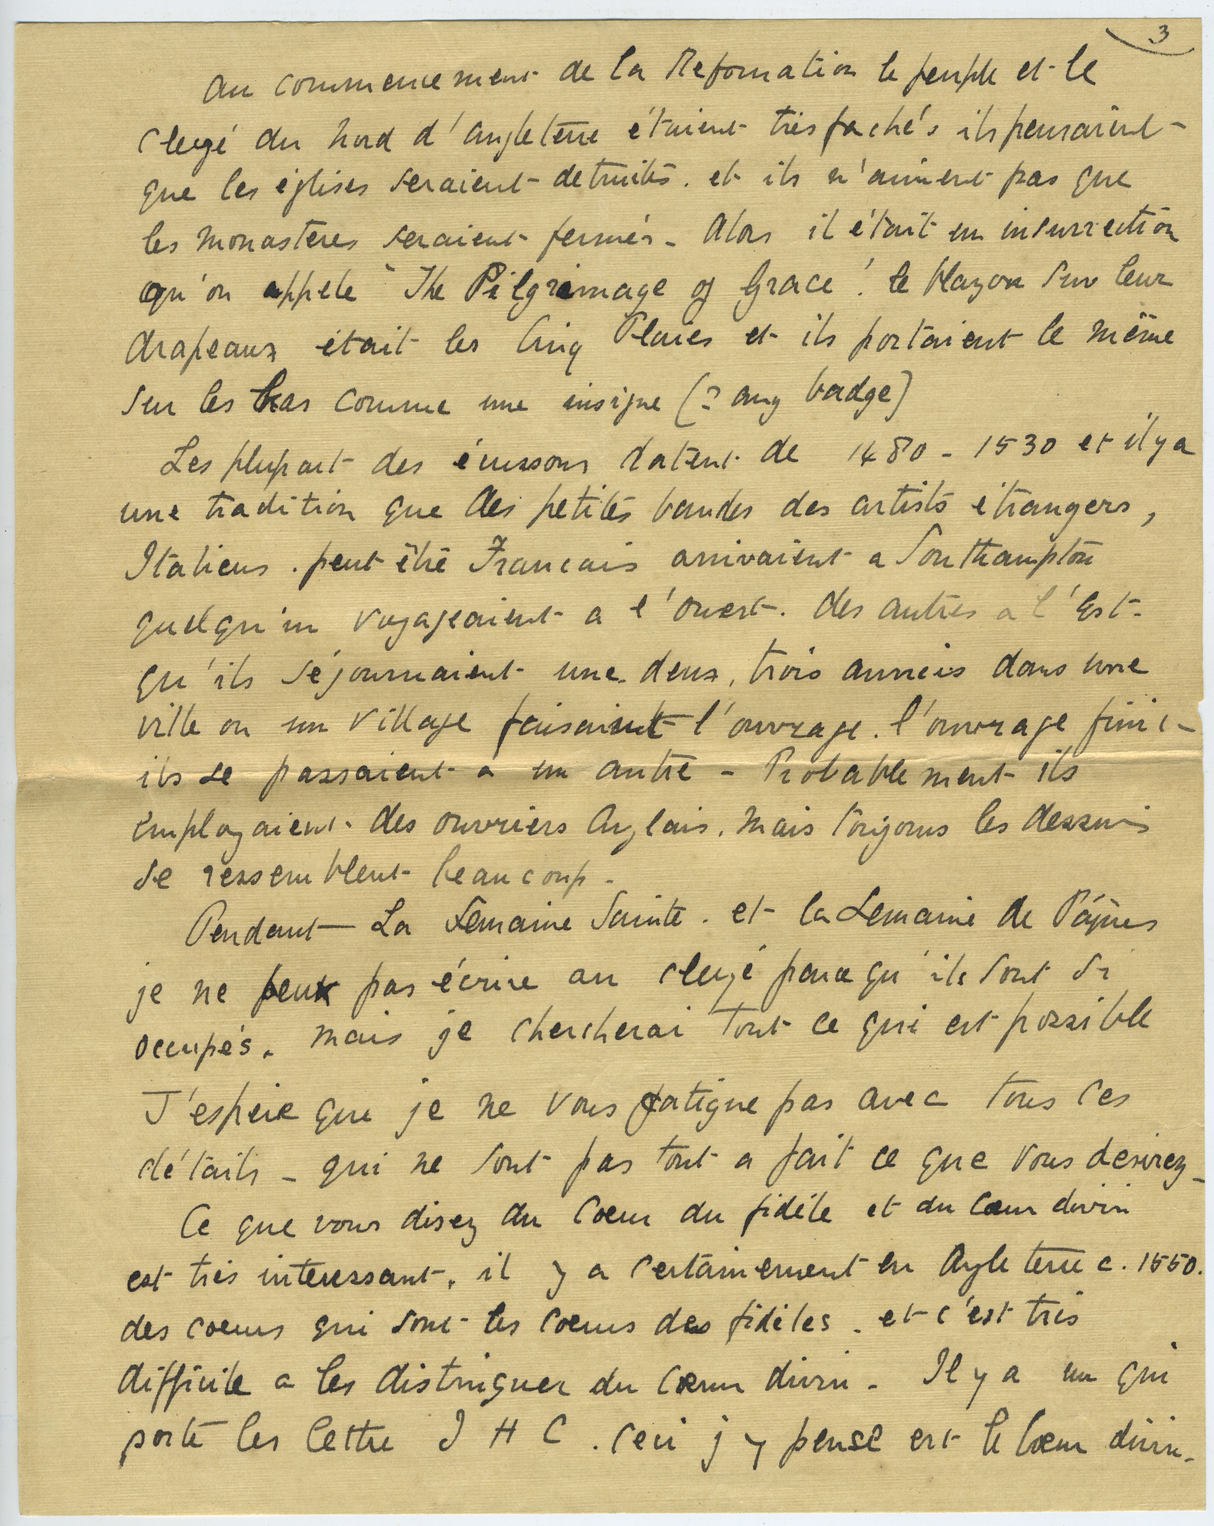 3
Au commencement de la Reformation le peuple et le
clergé du Nord d'Angleterre étaient très fachés ils pensaient
que les églises seraient detruités. et ils n'aiment pas que
les monastères seraient fermés - Alors il était un insurrection
qu'on appele "The Pilgrimage of Grace". le blazon sur leur
drapeaux était les Cinq Plaies et ils portaient le même
sur les bras comme une insigne (? ang badge)
Les plupart des écussons datent de 1480 - 1530 et il y a
une tradition que des petites bandes des artists étrangers,
Italiens . peut être Francais arrivaient a Southampton
quelqu'un voyageaient a l'ouest. des autres a l'Est -
qu'ils séjournaient une, deux, trois années dans une
ville ou un village faisaient l'ouvrage. l'ouvrage fini -
ils se passaient a un autre - Probablement ils
employaient des ouvriers Anglais. mais toujours les dessins
se ressemblent beaucoup -
Pendant La Semaine Sainte . et la Semaine de Pâques
je ne peux pas écrire au clergé parcequ'ils sont si
occupés. mais je chercherai tout ce qui est possible
J'espère que je ne vous fatigue pas avec tous ces
détails - qui ne sont pas tout a fait ce que vous desirez -
Ce que vous disez du Coeur du fidéle et du Cœur divin
est très interessant. il y a certainement en Angleterre c. 1550.
des coeurs qui sont les coeurs des fidéles . et c'est très
difficile a les distinguer du Cœur divin - Il y a un qui
porte les lettre I H C . ceci j'y pense est le Cœur divin -